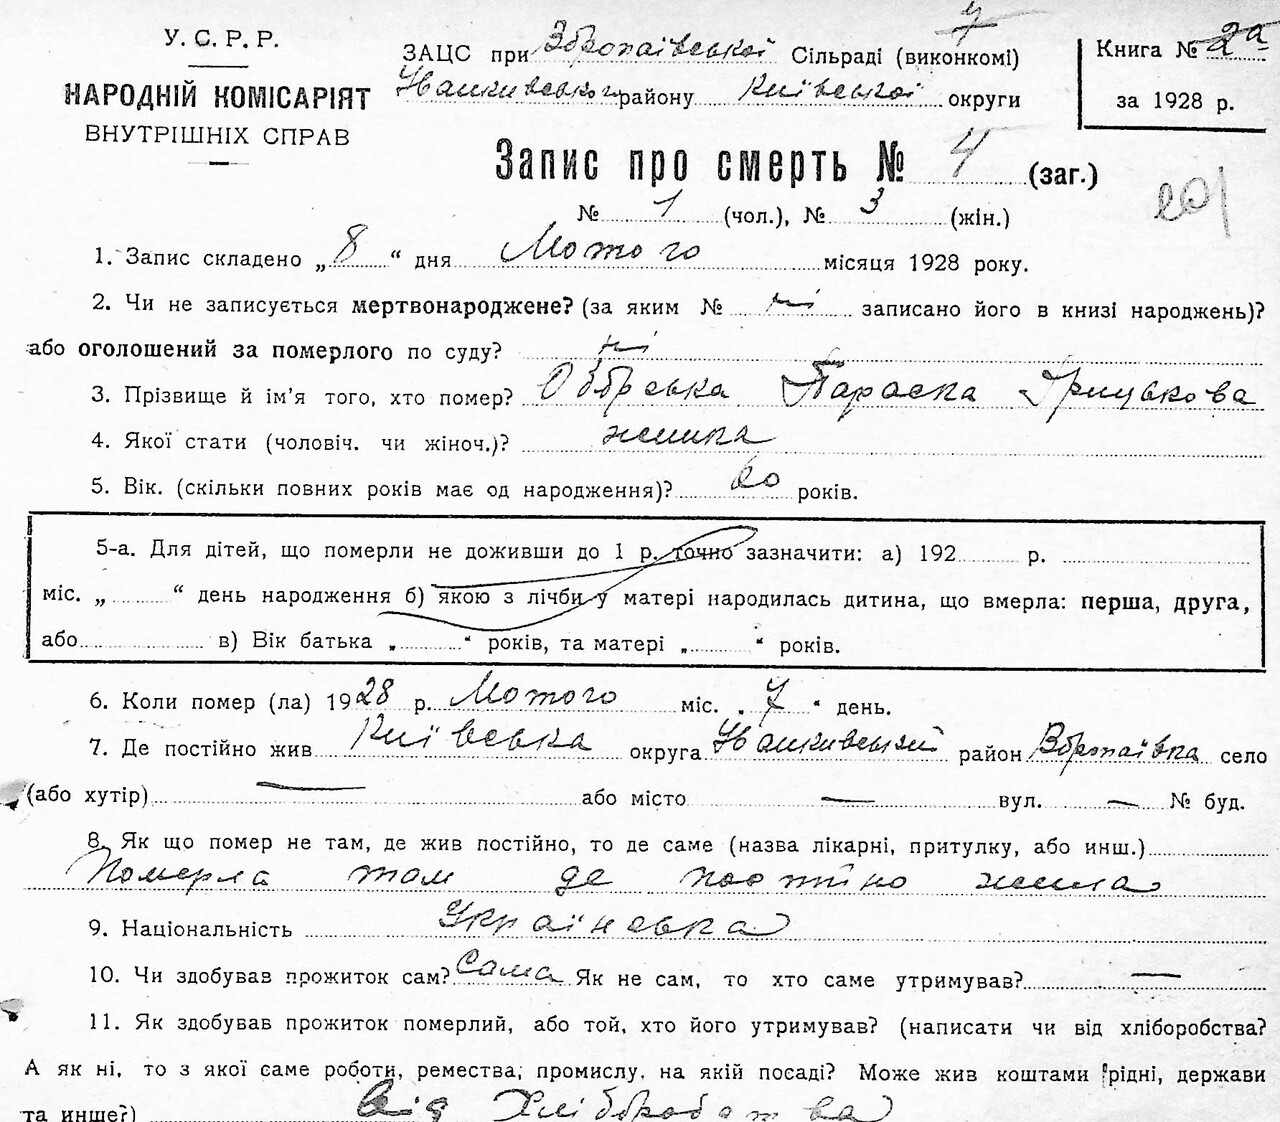 У. С. Р. Р.
НАРОДНІЙ КОМІСАРІЯТ
ВНУТРІШНІХ СПРАВ
7
ЗАЦС при Збропаївської Сільраді (виконкомі)
району Київської округи
Книга № 2а
за 1928 р.
Запис про смерть № 4 (заг.)
№ 1 (чол.), № 3 (жін.)
201
1. Запис складено „8“ дня Лютого місяця 1928 року.
2. Чи не записується мертвонароджене? (за яким № ні записано його в книзі народжень)?
або оголошений за померлого по суду? ні
3. Прізвище й ім'я того, хто помер? Параска Грицькова
4. Якої стати (чоловіч. чи жіноч.)? жінка
5. Вік. (скільки повних років має од народження)? 60 років.
5-а. Для дітей, що померли не доживши до 1 р. точно зазначити: а) 192 р.
міс. „ “ день народження б) якою з лічби у матері народилась дитина, що вмерла: перша, друга,
або в) Вік батька „ “ років, та матері „ “ років.
6. Коли помер (ла) 1928 р. Лютого міс. „7“ день.
7. Де постійно жив Київська округа район село
(або хутір) — або місто — вул. — № буд.
8. Як що помер не там, де жив постійно, то де саме (назва лікарні, притулку, або инш.)
Померла там де постійно жила
9. Національність Українська
10. Чи здобував прожиток сам? Сама Як не сам, то хто саме утримував? —
11. Як здобував прожиток померлий, або той, хто його утримував? (написати чи від хліборобства?
А як ні, то з якої саме роботи, ремества, промислу, на якій посаді? Може жив коштами рідні, держави
та инше?) від Хліборобства